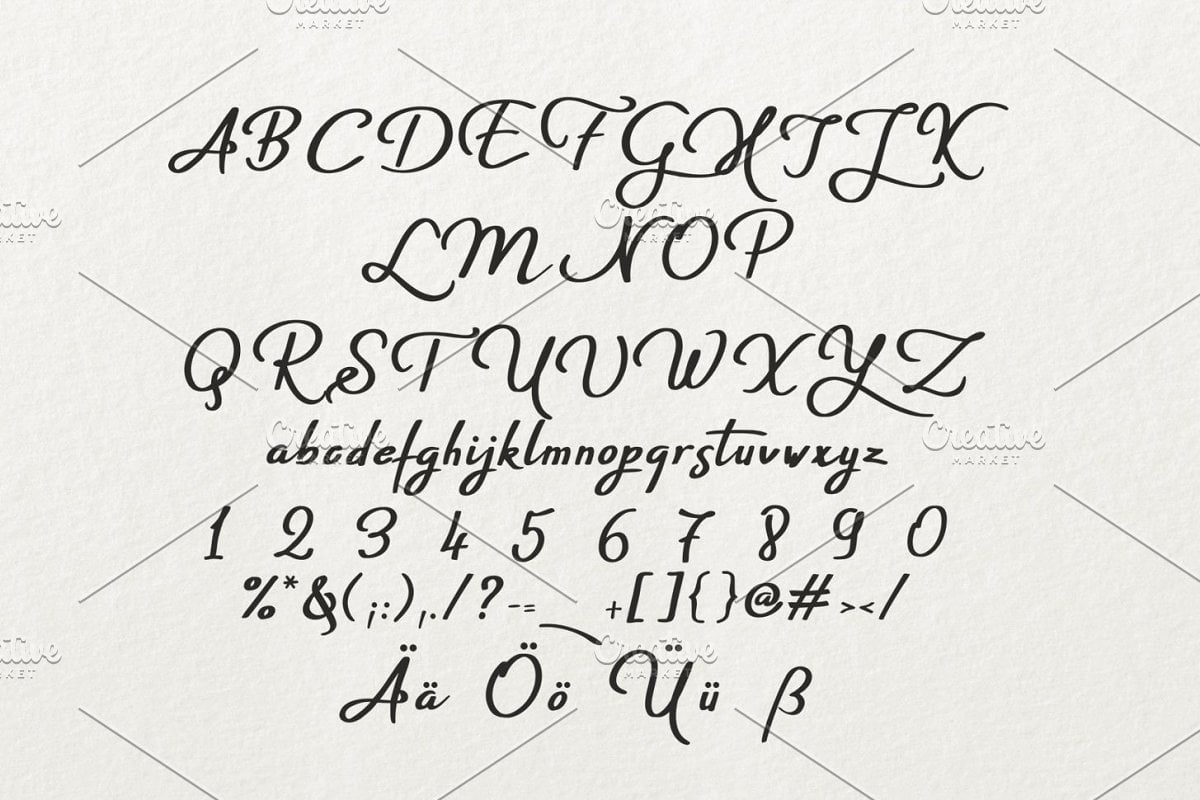 ABCDEFGHIJK
LMNOP
QRSTUVWXYZ
abcdefghijklmnopqrstuvwxyz
1 2 3 4 5 6 7 8 9 0
%*&(;:),./?-=_ +[]{}@#></
Ää Öö Üü ß
Creative
MARKET